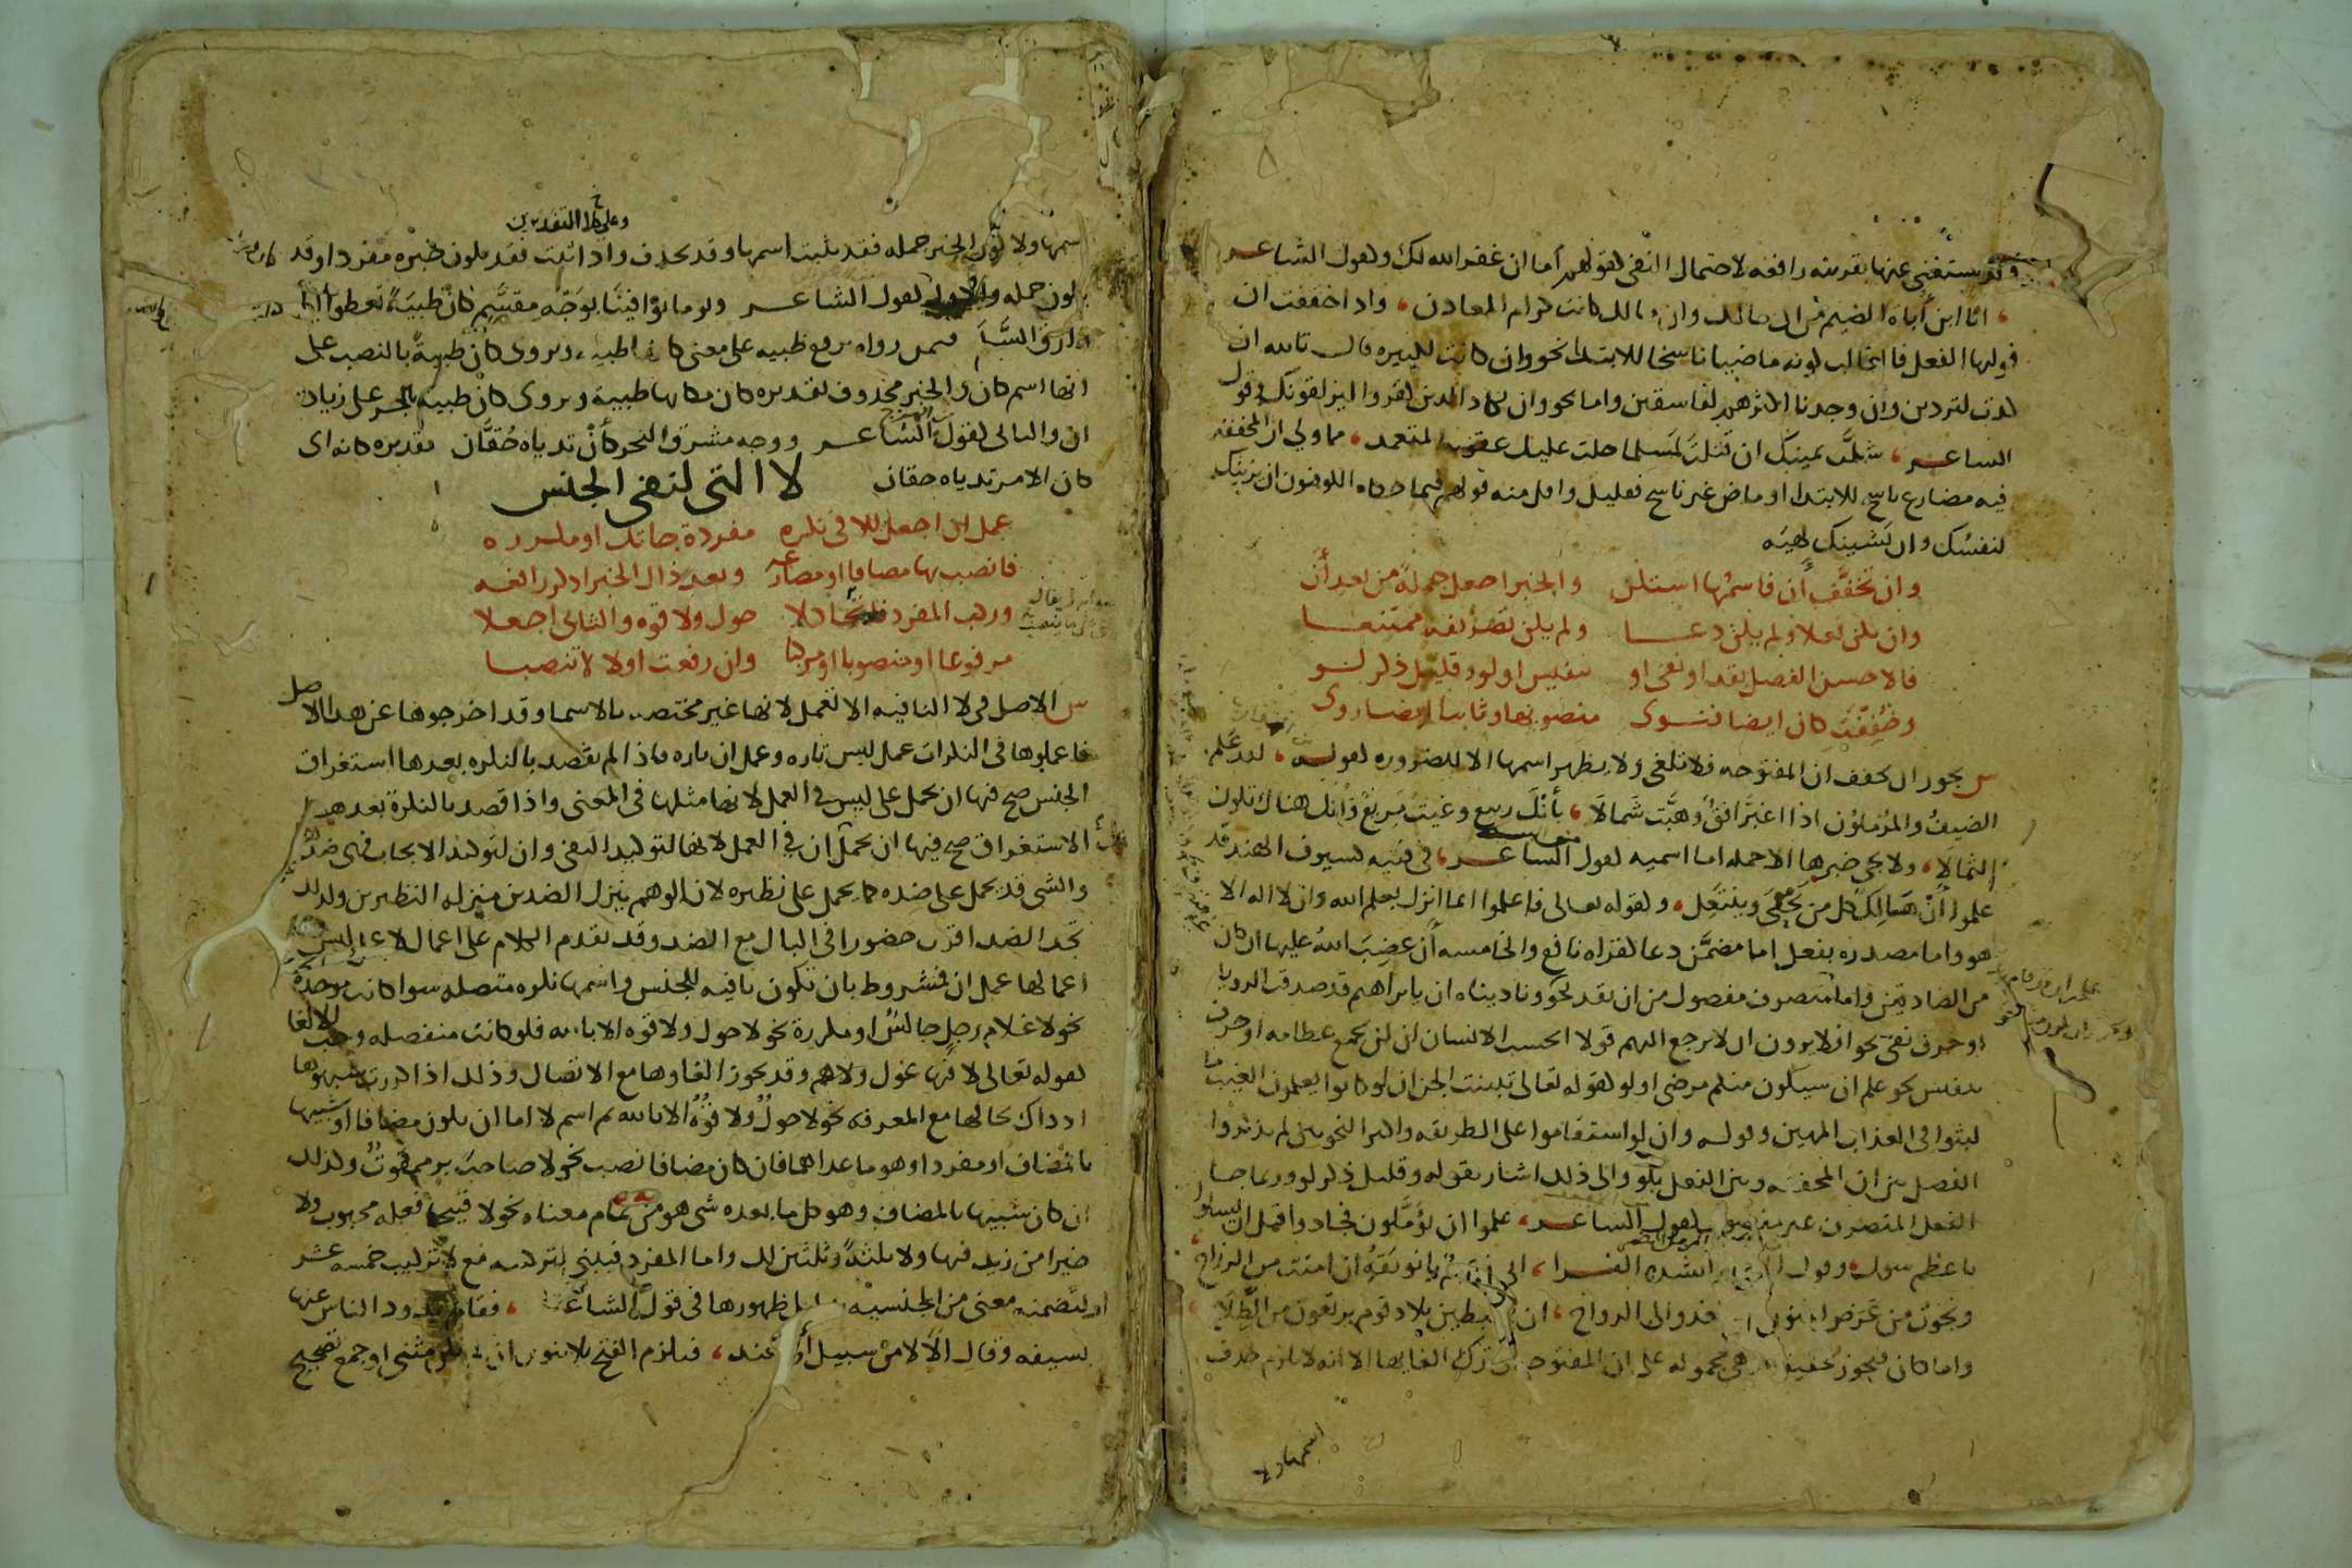 وقد يستغنى عنها بقرينه رافعه لاحتمال النفى لقولهم أما ان غفر الله لك ولقول الشاعر
انا ابن أباة الضيم من ال مالك وان مالك كانت كرام المعادن وادا خففت ان
فوليها الفعل فالغالب كونه ماضيا ناسخا للابتدا نحو وان كانت لكبيره قال تالله ان
كدت لتردين وان وجدنا اكثرهم لفاسقين واما نحو وان يكاد الذين كفروا ليزلقونك وقول
الشاعر شلت يمينك ان قتلت لمسلما حلت عليك عقوبه المتعمد مما ولي ان المخففه
فيه مضارع ناسخ للابتدا او ماض غير ناسخ فقليل واقل منه قولهم فيما حكاه الكوفيون ان يزينك
لنفسك وان يشينك لهيه
وان تخفف أن فاسمها استكن والخبر اجعل جملة من بعد أن
وان يكن فعلا ولم يكن دعا ولم يكن تصريفه ممتنعا
فالاحسن الفصل بقد او نفى او تنفيس او لو وقليل ذكر لو
وخففت كان ايضا فنوى منصوبها وثابتا ايضا روى
س يجوز ان تخفف ان المفتوحه فلا تلغى ولا يظهر اسمها الا للضروره لقوله لقد علم
الضيف والمرملون اذا اغبر افق وهبت شمالا بأنك ربيع وغيث مريع وأنك هناك تكون
الثمالا ولا يجى خبرها الا جمله اما اسميه لقول الشاعر فى فتيه كسيوف الهند قد
علموا أن هالك كل من يحفى وينتعل ولقوله تعالى فاعلموا انما انزل بعلم الله وان لا اله الا
هو واما مصدره بفعل اما مضمن دعا لقراه نافع والخامسه أن غضب الله عليها ان كان
من الصادقين واما متصرف مفصول من ان بقد نحو وناديناه ان يابراهيم قد صدقت الرويا
او حرف نفى نحو افلا يرون ان لا يرجع اليهم قولا ايحسب الانسان ان لن نجمع عظامه او حرف
تنفيس نحو علم ان سيكون منكم مرضى او لو لقوله تعالى تبينت الجن ان لو كانوا يعلمون الغيب ما
لبثوا فى العذاب المهين وقوله وان لو استقاموا على الطريقه واكثر النحويين لم يذكروا
الفصل بين ان المخففه وبين الفعل بلو والى ذلك اشار بقوله وقليل ذكر لو وربما جا
الفعل المتصرف غير مفصول لقول الشاعر علموا ان يؤملون فجادوا قبل ان يسئلوا
باعظم سول وقول انشده الفرا انى ان امنت من الرزاح
ونجوت من عرض المنون من الغدو الى الرواح ان تهبطين بلاد قوم يرتعون من الطلاح
واما كان فيجوز تخفيفها وهى محموله على ان المفتوحه فى ترك الغايها الا انه لا يلزم حذف
اسمها ولا
وعلى كلا التقديرين
اسمها ولا كون الخبر جمله فقد يثبت اسمها وقد يحذف واذا ثبت فقد يكون خبره مفردا وقد
يكون جمله لقول الشاعر ويوما توافينا بوجه مقسم كأن ظبية تعطو الى
وارق السلم فيمن رواه برفع ظبيه على معنى كانها ظبيه ويروى كأن ظبية بالنصب على
انها اسم كان والخبر محذوف تقديره كان مكانها ظبية ويروى كان ظبيه بالجر على زياده
ان والثانى لقول الشاعر ووجه مشرق النحر كأن ثدياه حقان تقديره كانه اى
كان الامر ثدياه حقان لا التى لنفى الجنس
عمل ان اجعل للا فى نكره مفردة جاتك او مكرره
فانصب بها مضافا او مضارعه وبعد ذاك الخبر اذكر رافعه
وركب المفرد فاتحا كلا حول ولا قوه والثانى اجعلا
مرفوعا او منصوبا او مركبا وان رفعت اولا لا تنصبا
س الاصل فى لا النافيه الا تعمل لانها غير مختصه بالاسما وقد اخرجوها عن هذا الاصل
فاعملوها فى النكرات عمل ليس تاره وعمل ان تاره فاذا لم يقصد بالنكره بعدها استغراق
الجنس صح فيها ان تحمل على ليس فى العمل لانها مثلها فى المعنى واذا قصد بالنكرة بعدها
الاستغراق صح فيها ان تحمل على ان في العمل لانها لتوكيد النفى وان لتوكيد الايجاب فهى ضدها
والشى قد يحمل على ضده كما يحمل على نظيره لان الوهم ينزل الضدين منزله النظيرين ولذلك
تجد الضد اقرب حضورا فى البال مع الضد وقد تقدم الكلام على اعمال لا عمل ليس
اعمالها عمل ان فمشروط بان تكون نافيه للجنس واسمها نكره متصله سوا كانت موحدة
نحو لا غلام رجل جالس او مكررة نحو لا حول ولا قوه الا بالله فلو كانت منفصله وجب الالغا
لقوله تعالى لا فيها غول ولا هم وقد يجوز الغاوها مع الاتصال وذلك اذا كررت شبهوها
اذ ذاك بحالها مع المعرفه نحو لا حول ولا قوة الا بالله ثم اسم لا اما ان يكون مضافا او شبيها
بالمضاف او مفردا وهو ما عداهما فان كان مضافا نصب نحو لا صاحب بر ممقوت وكذلك
ان كان شبيها بالمضاف وهو كل ما بعده شى هو من تمام معناه نحو لا قبيحا فعله محبوب ولا
خيرا من زيد فيها ولا ثلثة وثلثين لك واما المفرد فيبنى لتركيبه مع لا تركيب خمسه عشر
او لتضمنه معنى من الجنسيه بدليل ظهورها فى قول الشاعر فقام يذود الناس عنها
بسيفه وقال الا لا من سبيل الى هند فيلزم الفتح بلا تنوين ان لم يكن مثنى او جمع تصحيح